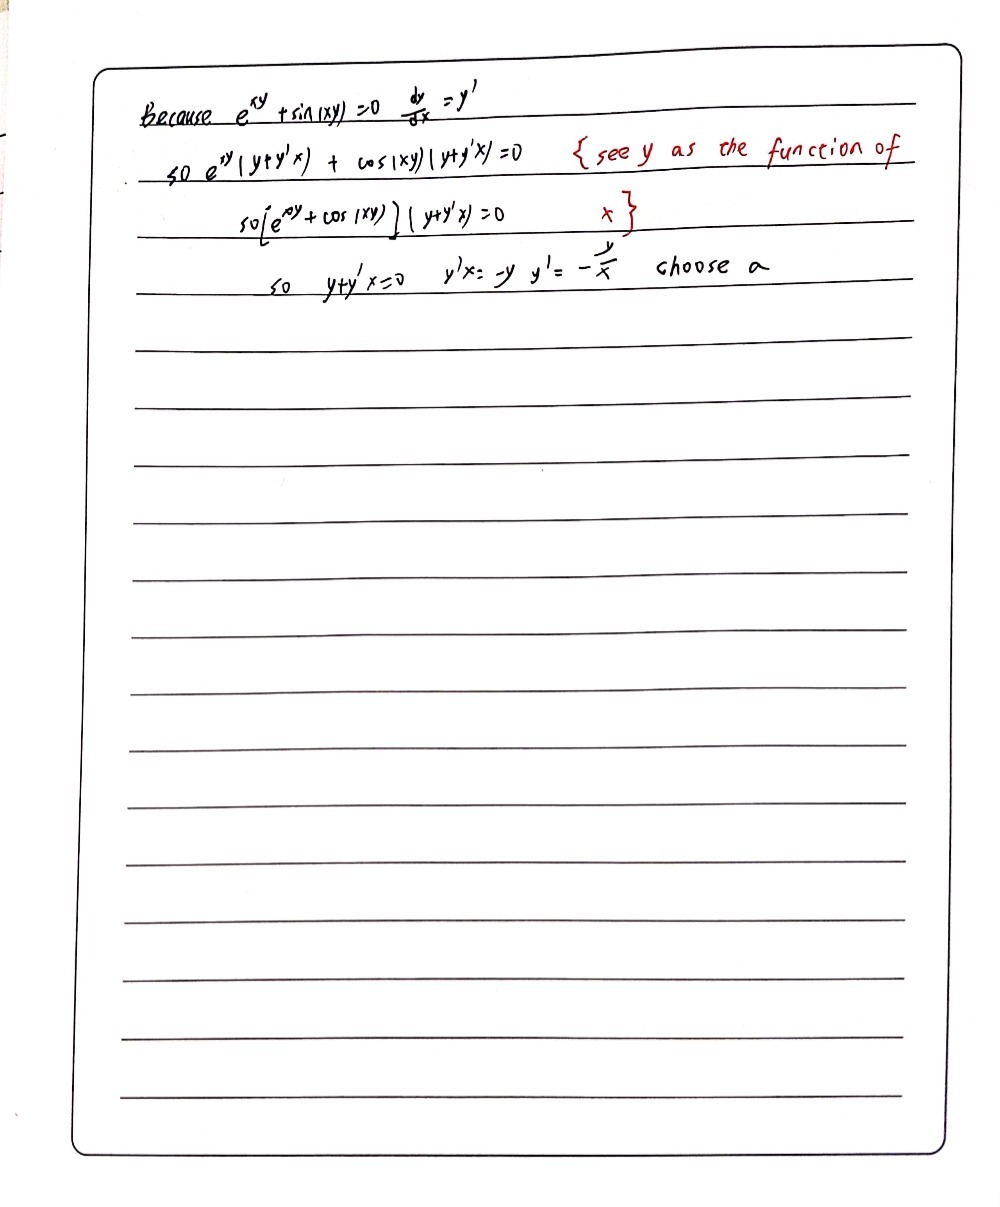 Because e^{xy} + sin(xy) = 0 dy/dx = y'
so e^{xy}(y+y'x) + cos(xy)(y+y'x) = 0 {see y as the function of
so [e^{xy} + cos(xy)](y+y'x) = 0 x}
so y+y'x=0 y'x=-y y'=-y/x choose a